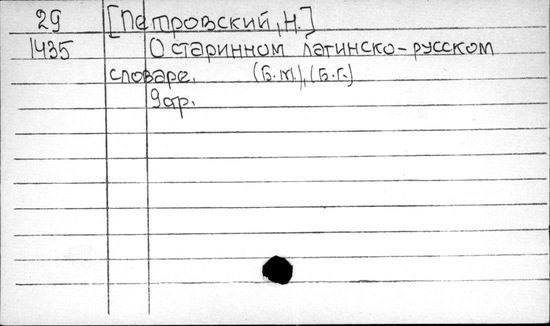 29 [Петровский, Н.]
1435 О старинном латинско-русском
словаре. (Б.м.), (Б.г.)
9 стр.